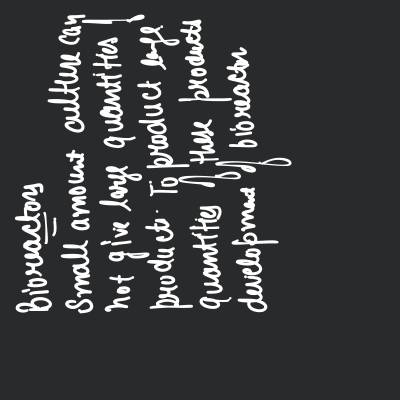 Bioreactors
Small amount culture can
not give large quantities of
products. To product large
quantities of these products
development of bioreactor